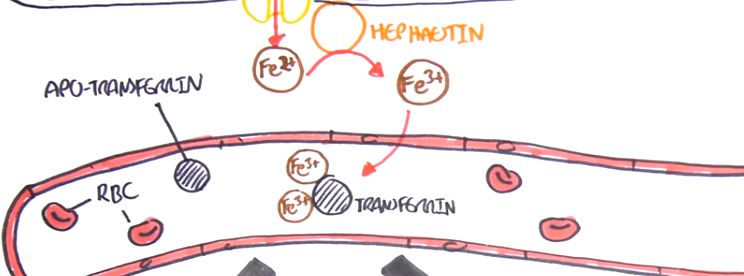 HEPHAESTIN
Fe2+
Fe3+
APO-TRANSFERRIN
Fe3+
RBC
Fe3+
TRANSFERRIN